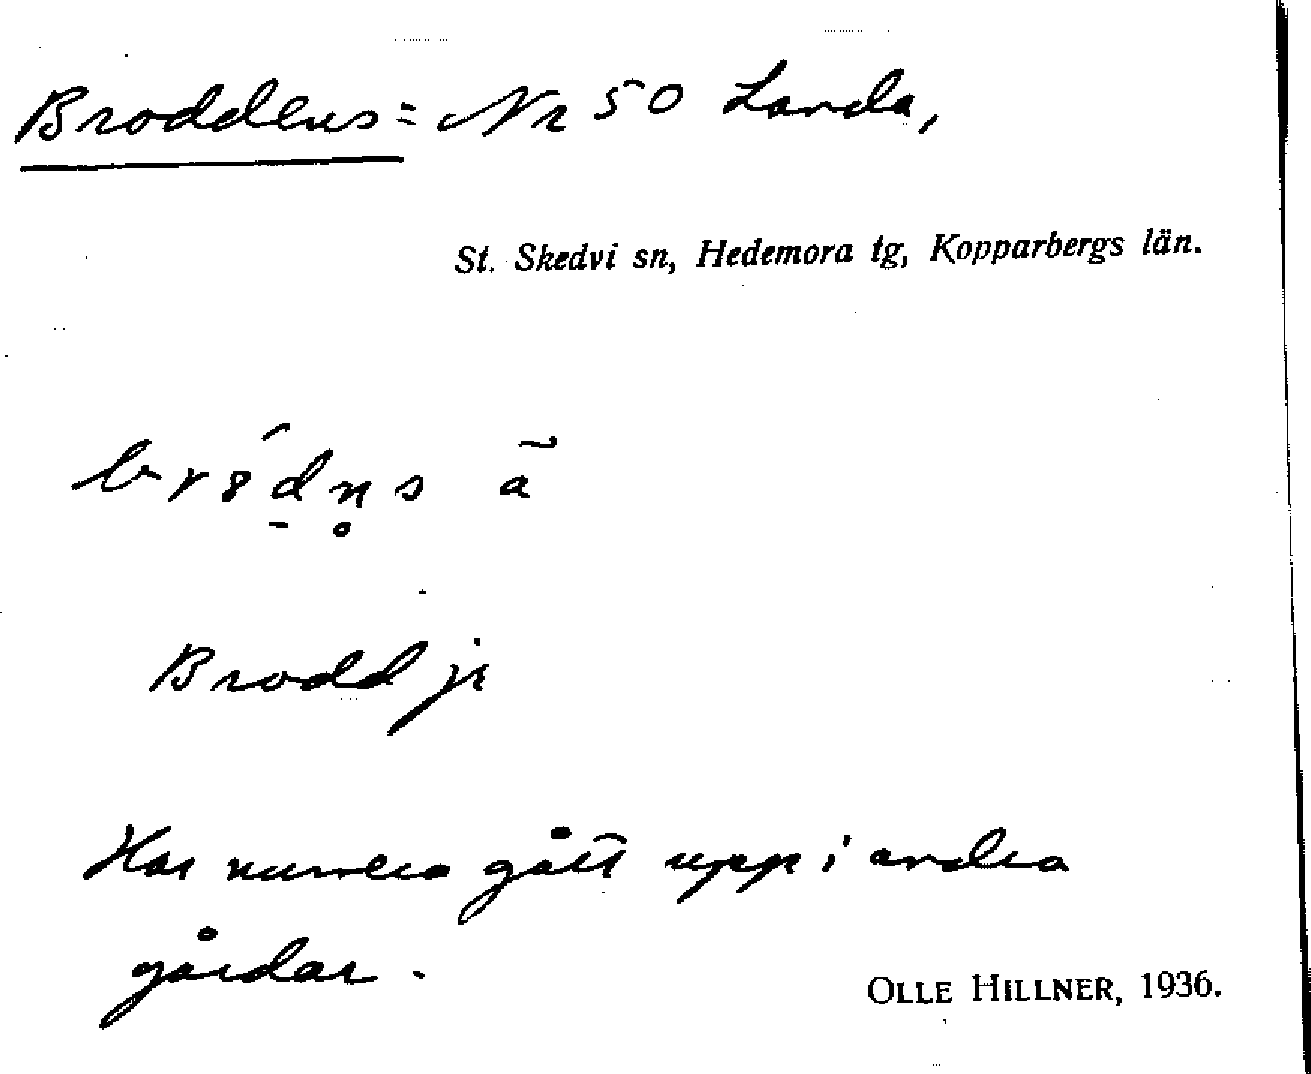 Broddens = Nr 50 Landa,
St. Skedvi sn, Hedemora tg, Kopparbergs län.
br8́d̠n̥s ã
Brodd jr
Har numera gått upp i andra
gårdar.
OLLE HILLNER, 1936.